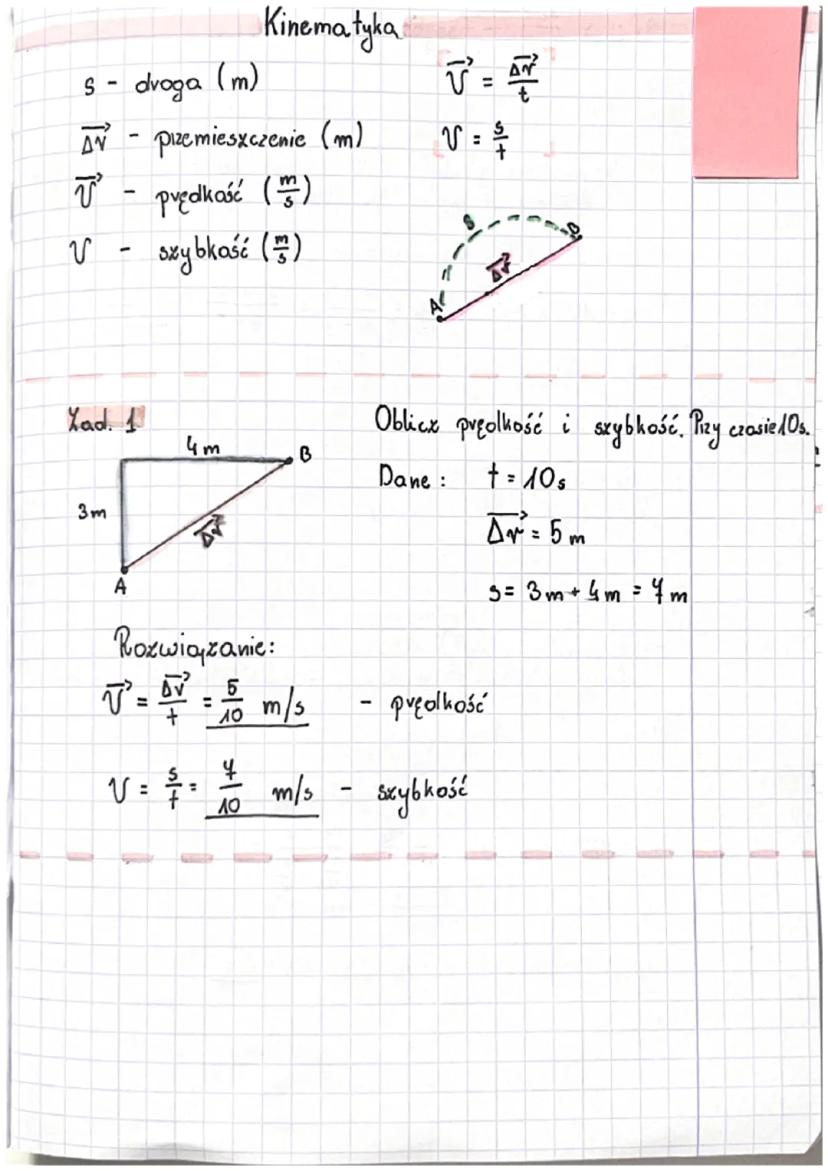 Kinematyka
s - droga (m)
Δr⃗ - przemieszczenie (m)
V⃗ - prędkość (m/s)
V - szybkość (m/s)
V⃗ = Δr⃗/t
V = s/t
s
A
B
Δr⃗
Zad. 1
4 m
B
3m
Δr⃗
A
Oblicz prędkość i szybkość. Przy czasie 10s.
Dane: t = 10s
Δr⃗ = 5 m
s = 3m + 4m = 7m
Rozwiązanie:
V⃗ = Δr⃗/t = 5/10 m/s - prędkość
V = s/t = 7/10 m/s - szybkość